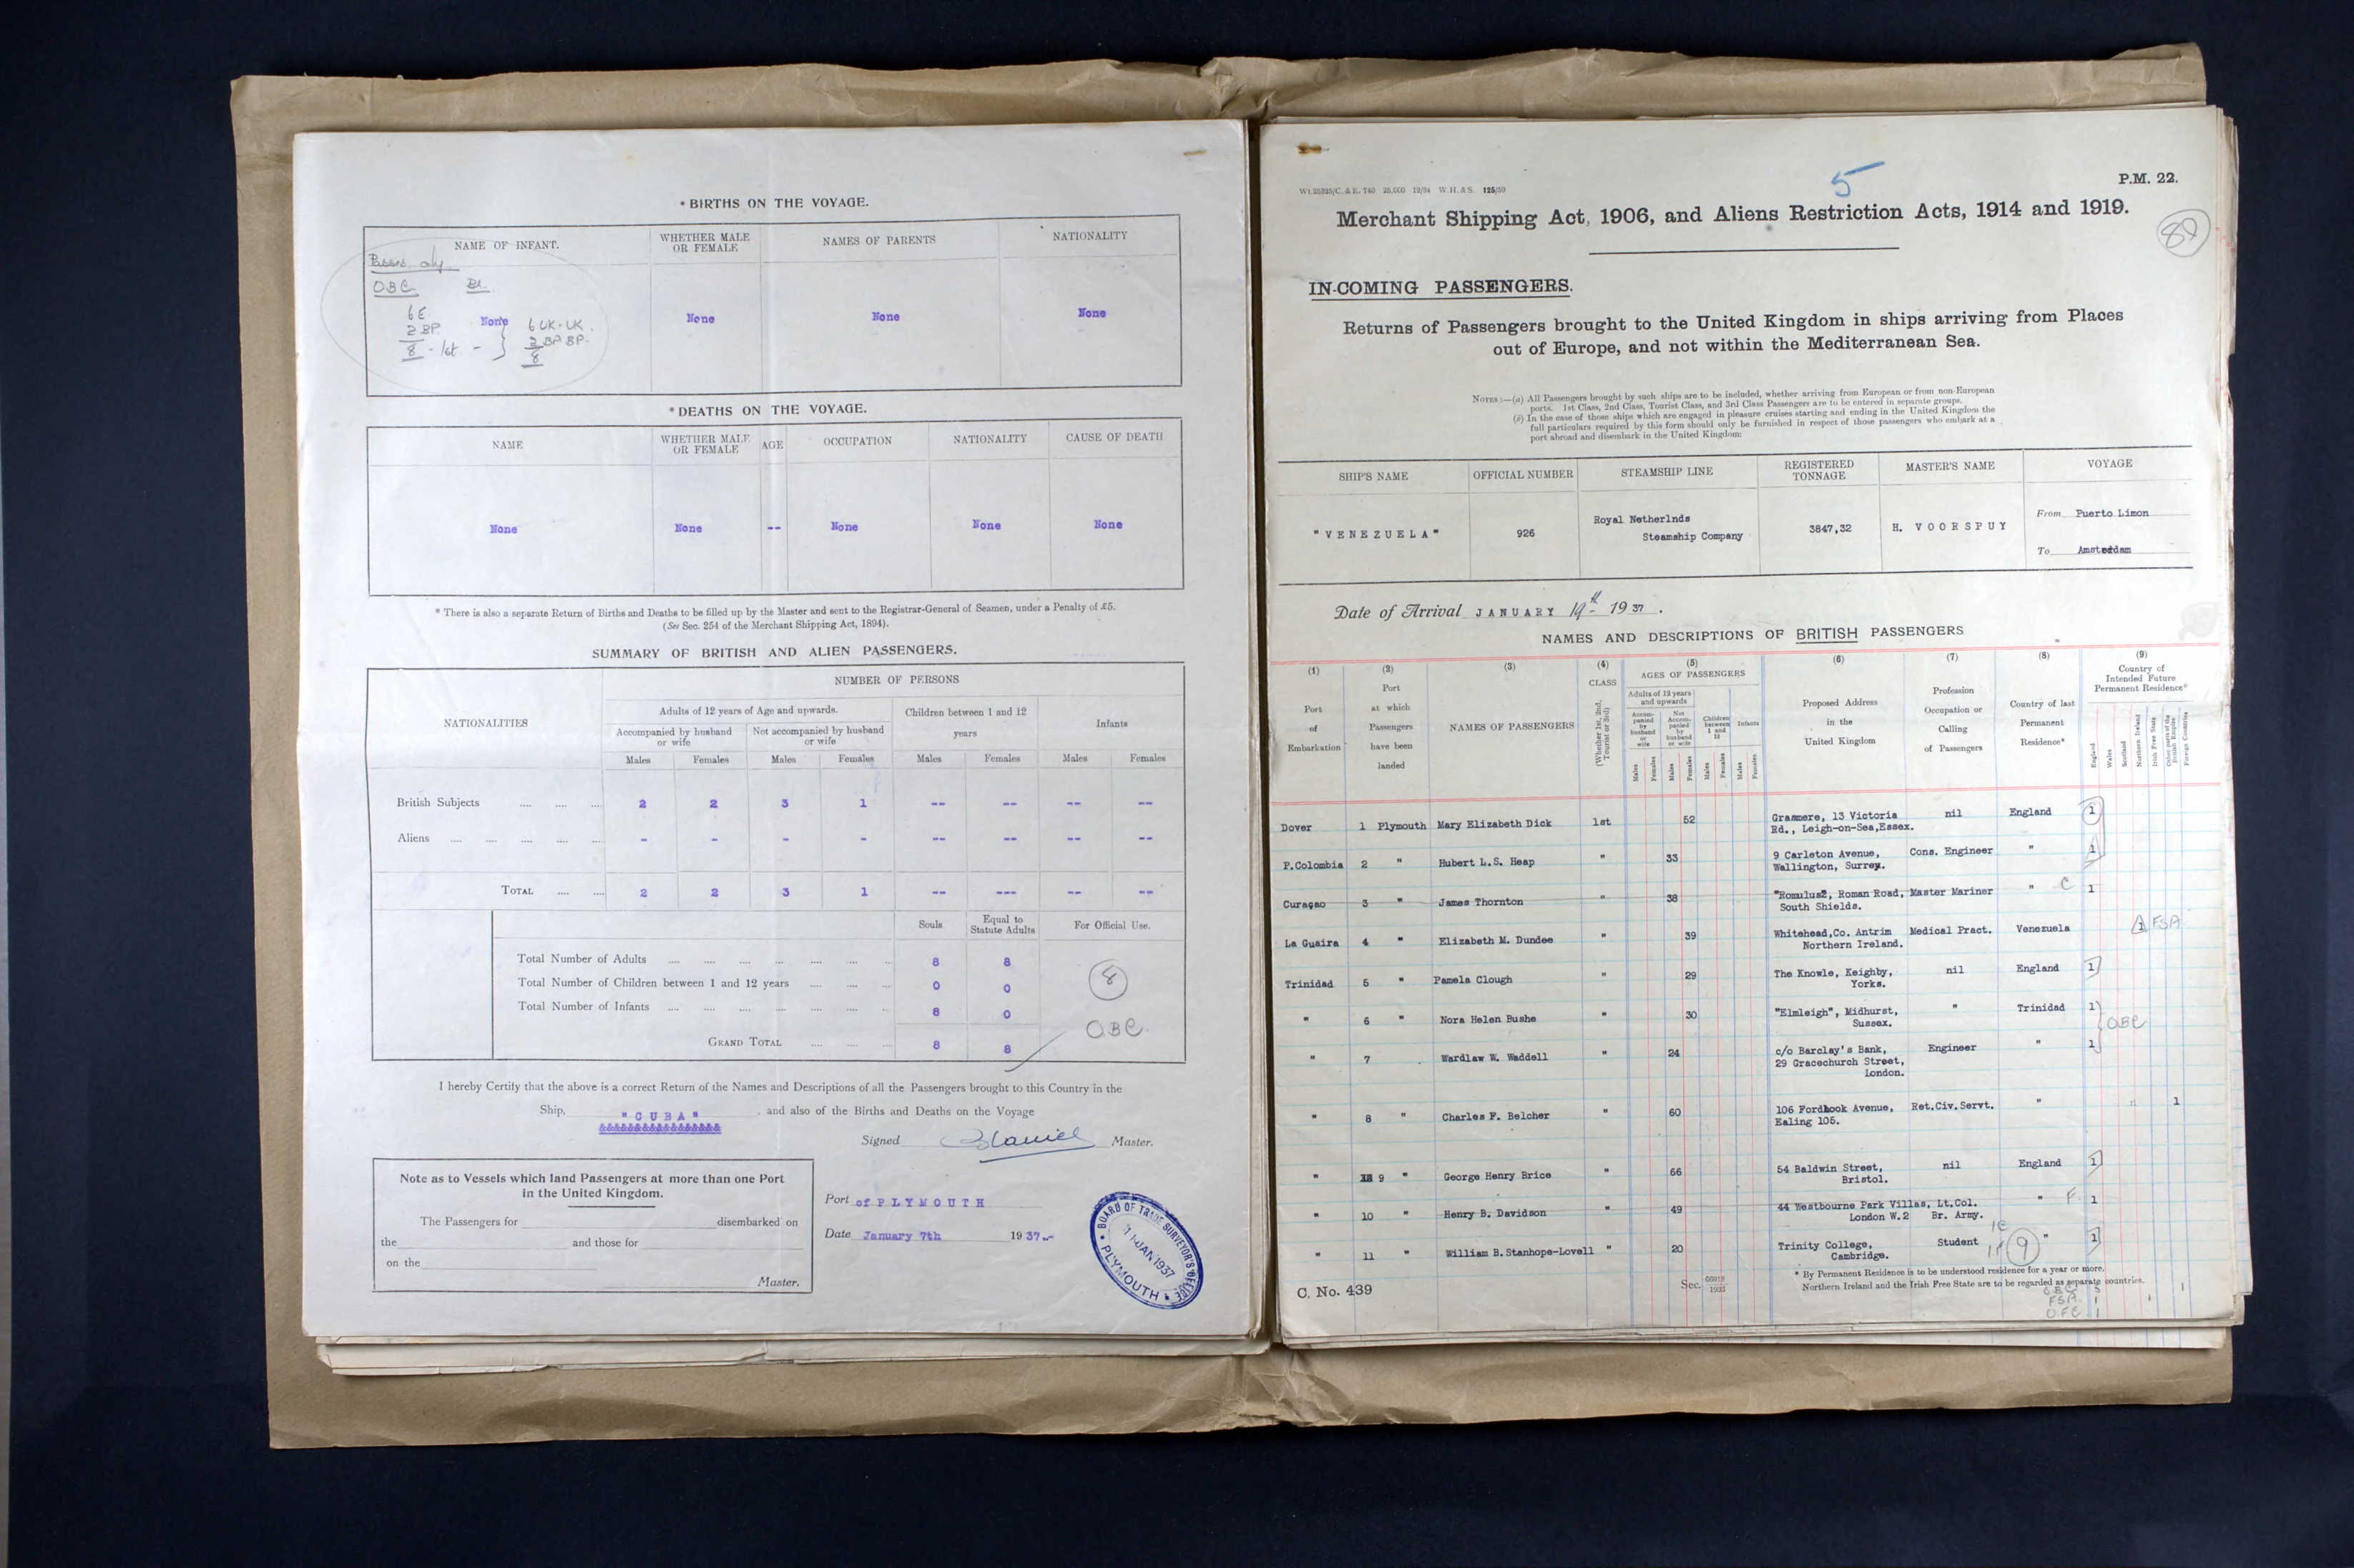 * BIRTHS ON THE VOYAGE.
NAME OF INFANT.
WHETHER MALE OR FEMALE
NAMES OF PARENTS
NATIONALITY
OBC
6 E
2 BP
8 - 1st -
6 UK - UK
2 BP BP.
8
None
None
None
None
* DEATHS ON THE VOYAGE.
NAME
WHETHER MALE OR FEMALE
AGE
OCCUPATION
NATIONALITY
CAUSE OF DEATH
None
None
--
None
None
None
* There is also a separate Return of Births and Deaths to be filled up by the Master and sent to the Registrar-General of Seamen, under a Penalty of £5.
(See Sec. 254 of the Merchant Shipping Act, 1894).
SUMMARY OF BRITISH AND ALIEN PASSENGERS.
NATIONALITIES
NUMBER OF PERSONS
Adults of 12 years of Age and upwards.
Children between 1 and 12 years
Infants
Accompanied by husband or wife
Not accompanied by husband or wife
Males Females Males Females Males Females Males Females
British Subjects .... .... .... 2 2 3 1 -- -- -- --
Aliens .... .... .... .... .... - - - - -- -- -- --
TOTAL .... .... 2 2 3 1 -- --- -- --
Souls
Equal to Statute Adults
For Official Use.
Total Number of Adults 8 8
Total Number of Children between 1 and 12 years 0 0
Total Number of Infants 8 0
GRAND TOTAL 8 8
8
OBC.
I hereby Certify that the above is a correct Return of the Names and Descriptions of all the Passengers brought to this Country in the
Ship, "CUBA" , and also of the Births and Deaths on the Voyage
&&&&&&&&&&&&&&&&&
Signed Master.
Note as to Vessels which land Passengers at more than one Port
in the United Kingdom.
The Passengers for disembarked on
the and those for
on the
Master.
Port of PLYMOUTH
Date January 7th 1937.-
BOARD OF TRADE SURVEYOR'S OFFICE
11 JAN 1937
PLYMOUTH
Wt.25325/C. & E. 740 25,000 12/34 W.H. & S. 125/59
5
P.M. 22.
Merchant Shipping Act, 1906, and Aliens Restriction Acts, 1914 and 1919.
IN-COMING PASSENGERS.
Returns of Passengers brought to the United Kingdom in ships arriving from Places
out of Europe, and not within the Mediterranean Sea.
NOTES :—(a) All Passengers brought by such ships are to be included, whether arriving from European or from non-European
ports. 1st Class, 2nd Class, Tourist Class, and 3rd Class Passengers are to be entered in separate groups.
(b) In the case of those ships which are engaged in pleasure cruises starting and ending in the United Kingdom the
full particulars required by this form should only be furnished in respect of those passengers who embark at a
port abroad and disembark in the United Kingdom.
SHIP'S NAME
OFFICIAL NUMBER
STEAMSHIP LINE
REGISTERED TONNAGE
MASTER'S NAME
VOYAGE
"VENEZUELA"
926
Royal Netherlnds
Steamship Company
3847,32
H. VOORSPUY
From Puerto Limon
To Amsterdam
Date of Arrival JANUARY 19th 1937.
NAMES AND DESCRIPTIONS OF BRITISH PASSENGERS
(1) Port of Embarkation
(2) Port at which Passengers have been landed
(3) NAMES OF PASSENGERS
(4) CLASS (Whether 1st, 2nd, Tourist or 3rd)
(5) AGES OF PASSENGERS
Adults of 12 years and upwards
Accompanied by husband or wife
Not Accompanied by husband or wife
Children between 1 and 12
Infants
Males Females Males Females Males Females Males Females
(6) Proposed Address in the United Kingdom
(7) Profession Occupation or Calling of Passengers
(8) Country of last Permanent Residence*
(9) Country of Intended Future Permanent Residence*
England
Wales
Scotland
Northern Ireland
Irish Free State
Other parts of the British Empire
Foreign Countries
Dover 1 Plymouth Mary Elizabeth Dick 1st 52 Grasmere, 13 Victoria nil England 1
Rd., Leigh-on-Sea,Essex.
P.Colombia 2 " Hubert L.S. Heap " 33 9 Carleton Avenue, Cons. Engineer " 1
Wallington, Surrey.
Curaçao 3 " James Thornton " 38 "Romulus2, Roman Road, Master Mariner " C 1
South Shields.
La Guaira 4 " Elizabeth M. Dundee " 39 Whitehead,Co. Antrim Medical Pract. Venezuela 1 FSA
Northern Ireland.
Trinidad 5 " Pamela Clough " 29 The Knowle, Keighby, nil England 1
Yorks.
" 6 " Nora Helen Bushe " 30 "Elmleigh", Midhurst, " Trinidad 1
Sussex.
OBC
" 7 . Wardlaw W. Waddell " 24 c/o Barclay's Bank, Engineer " 1
29 Gracechurch Street,
London.
" 8 " Charles F. Belcher " 60 106 Fordhook Avenue, Ret.Civ.Servt. " 1
Ealing 105.
" 9 " George Henry Brice " 66 54 Baldwin Street, nil England 1
Bristol.
" 10 " Henry B. Davidson " 49 44 Westbourne Park Villas, Lt.Col. " F. 1
London W.2 Br. Army.
" 11 " William B.Stanhope-Lovell " 20 Trinity College, Student 9 " 1
Cambridge.
* By Permanent Residence is to be understood residence for a year or more.
Northern Ireland and the Irish Free State are to be regarded as separate countries.
C. No. 439
Sec.
OBC 5
FSA 1
OFC 1